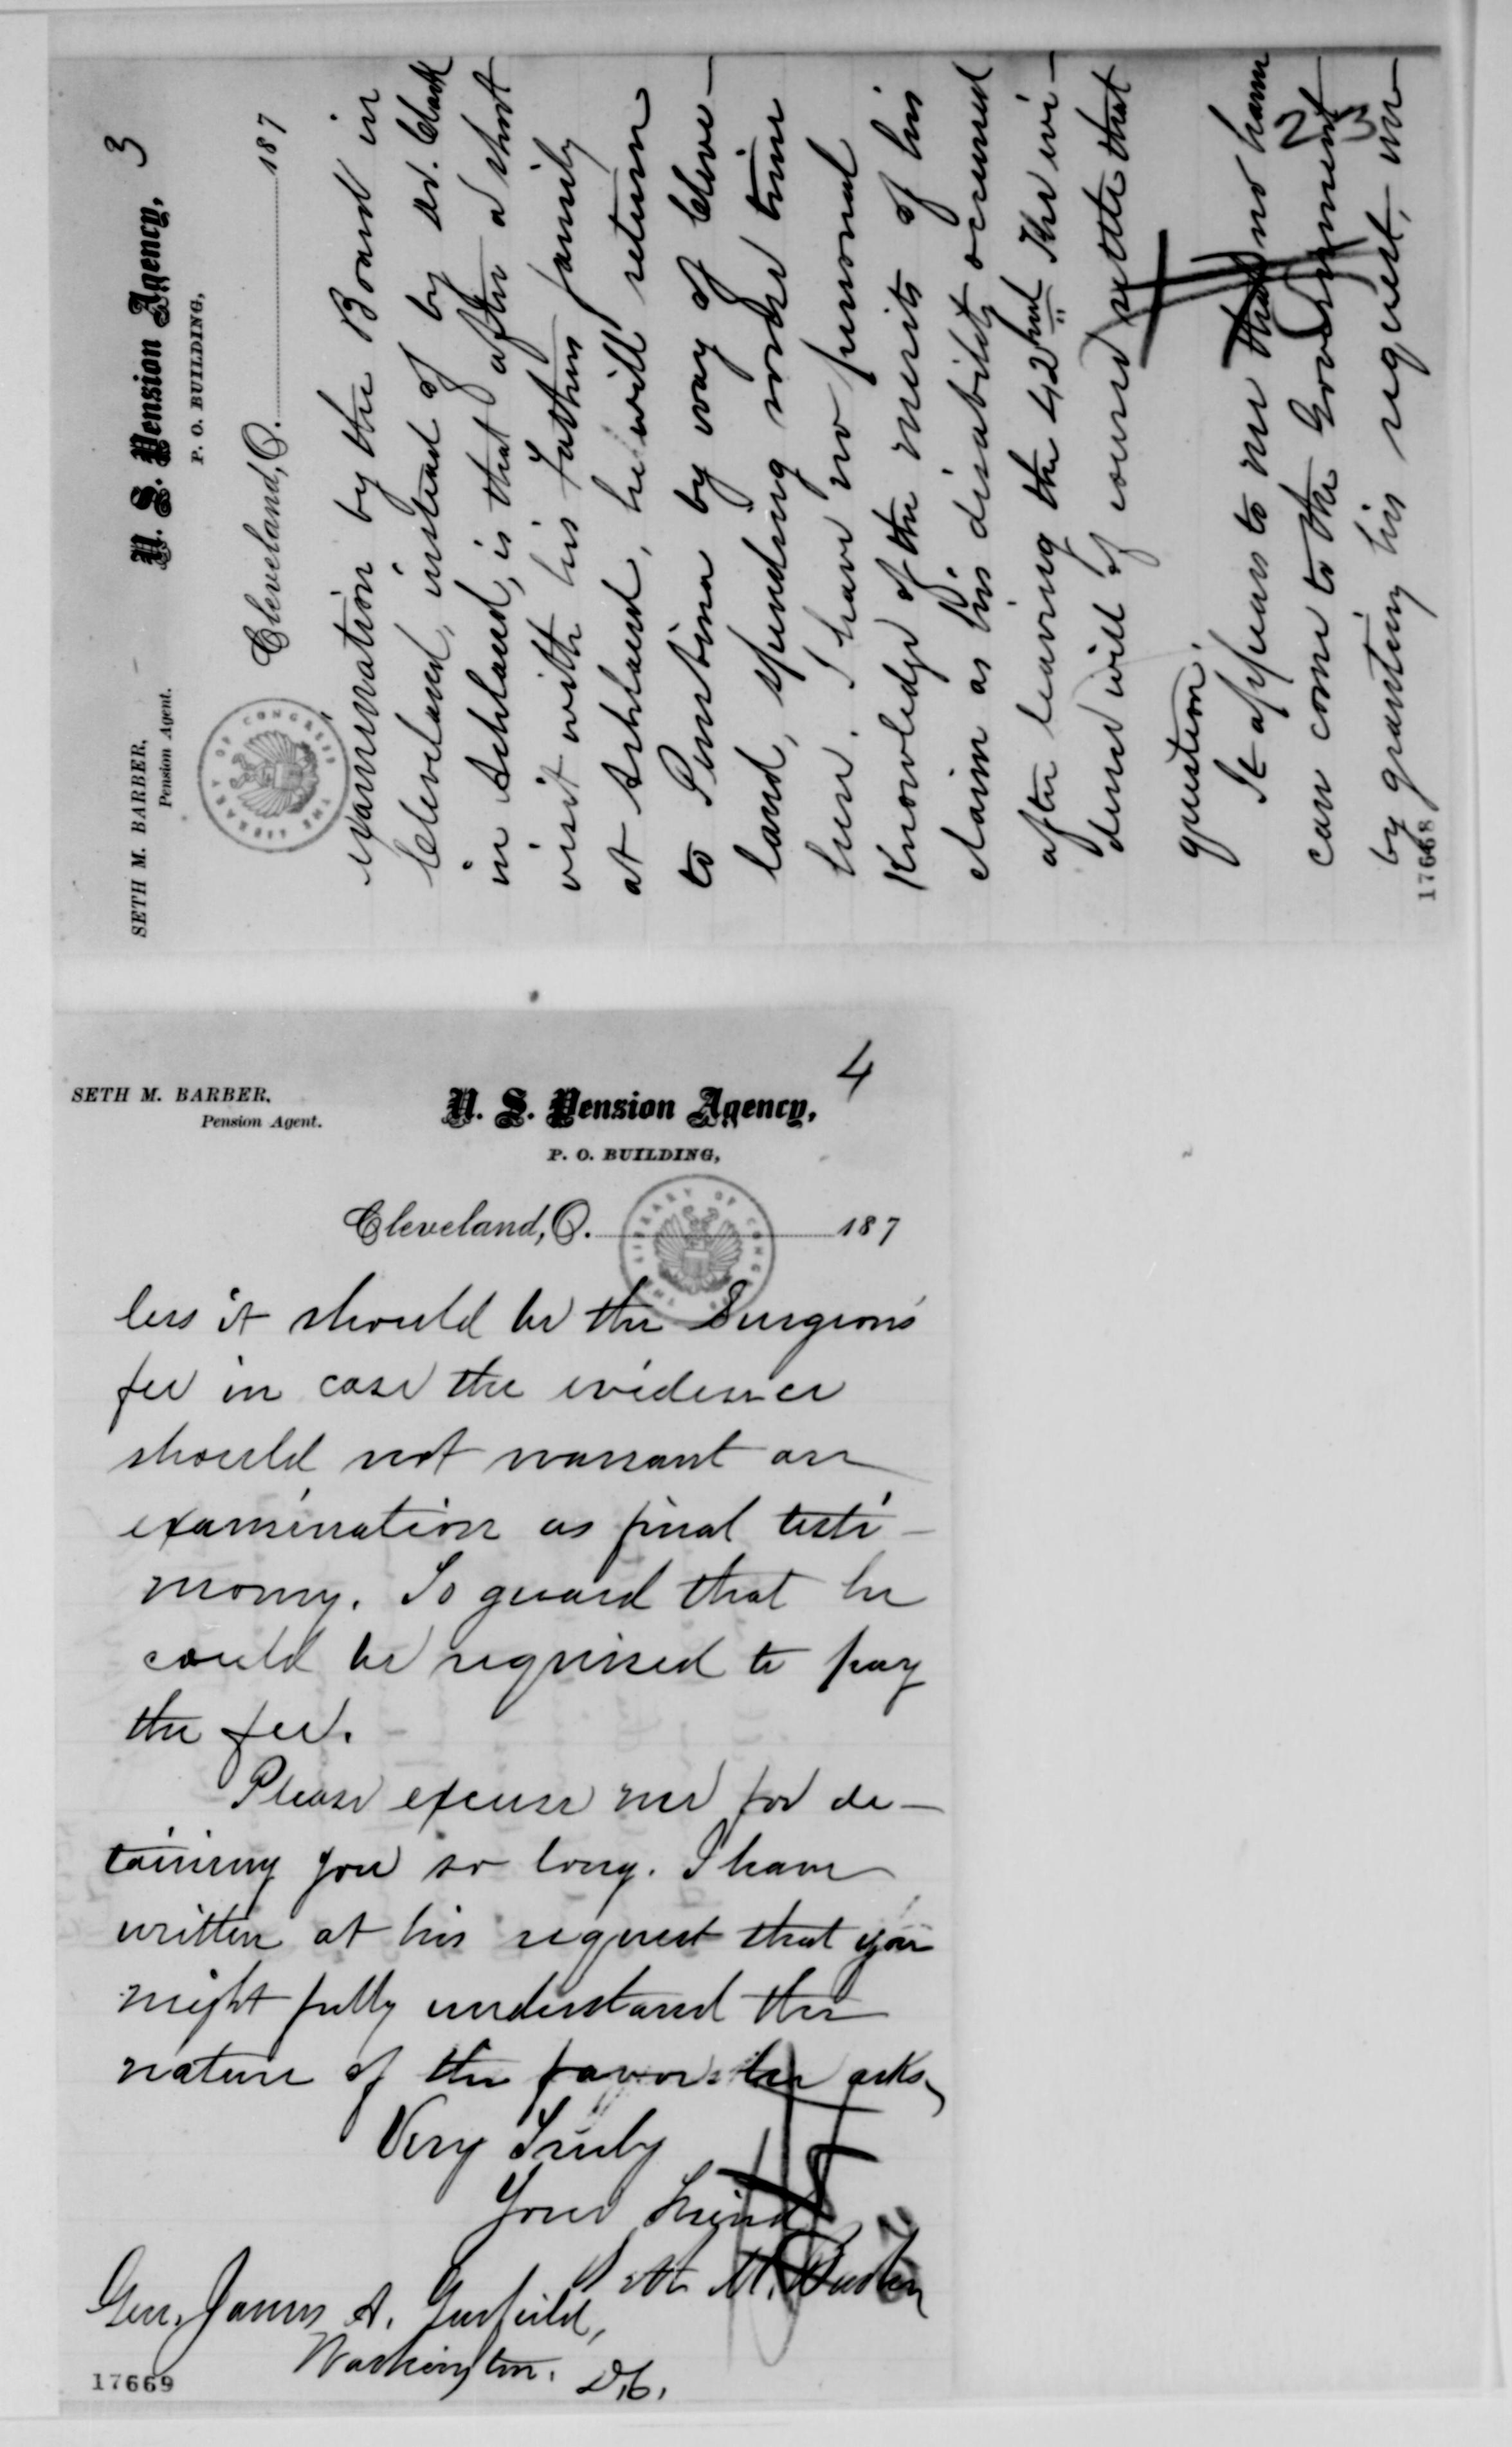 3
SETH M. BARBER,
Pension Agent.
U. S. Pension Agency,
P. O. BUILDING,
Cleveland, O. 187
THE LIBRARY OF CONGRESS
examination by the Board in
Cleveland, instead of by Dr. Clark
in Ashland, is that after a short
visit with his Fathers family
at Ashland, he will return
to Pensbina by way of Cleve-
land, spending some time
here. I have no personal
Knowledge of the merits of his
claim as his disability occurred
after leaving the 42nd The evi-
dence will of course settle that
question.
It appears to me that no harm
can come to the Government
by granting his request, un-
23
17668
4
SETH M. BARBER,
Pension Agent.
U. S. Pension Agency,
P. O. BUILDING,
Cleveland, O. 187
THE LIBRARY OF CONG
less it should be the Surgeon's
fee in case the evidence
should not warrant an
examination as final testi-
mony. To guard that he
could be required to pay
the fee.
Please excuse me for de-
taining you so long. I have
written at his request that you
might fully understand the
nature of the favor he asks.
Very Truly
Your friend
Seth M. Barber
Gen. James A. Garfield,
Washington. D.C.
17669